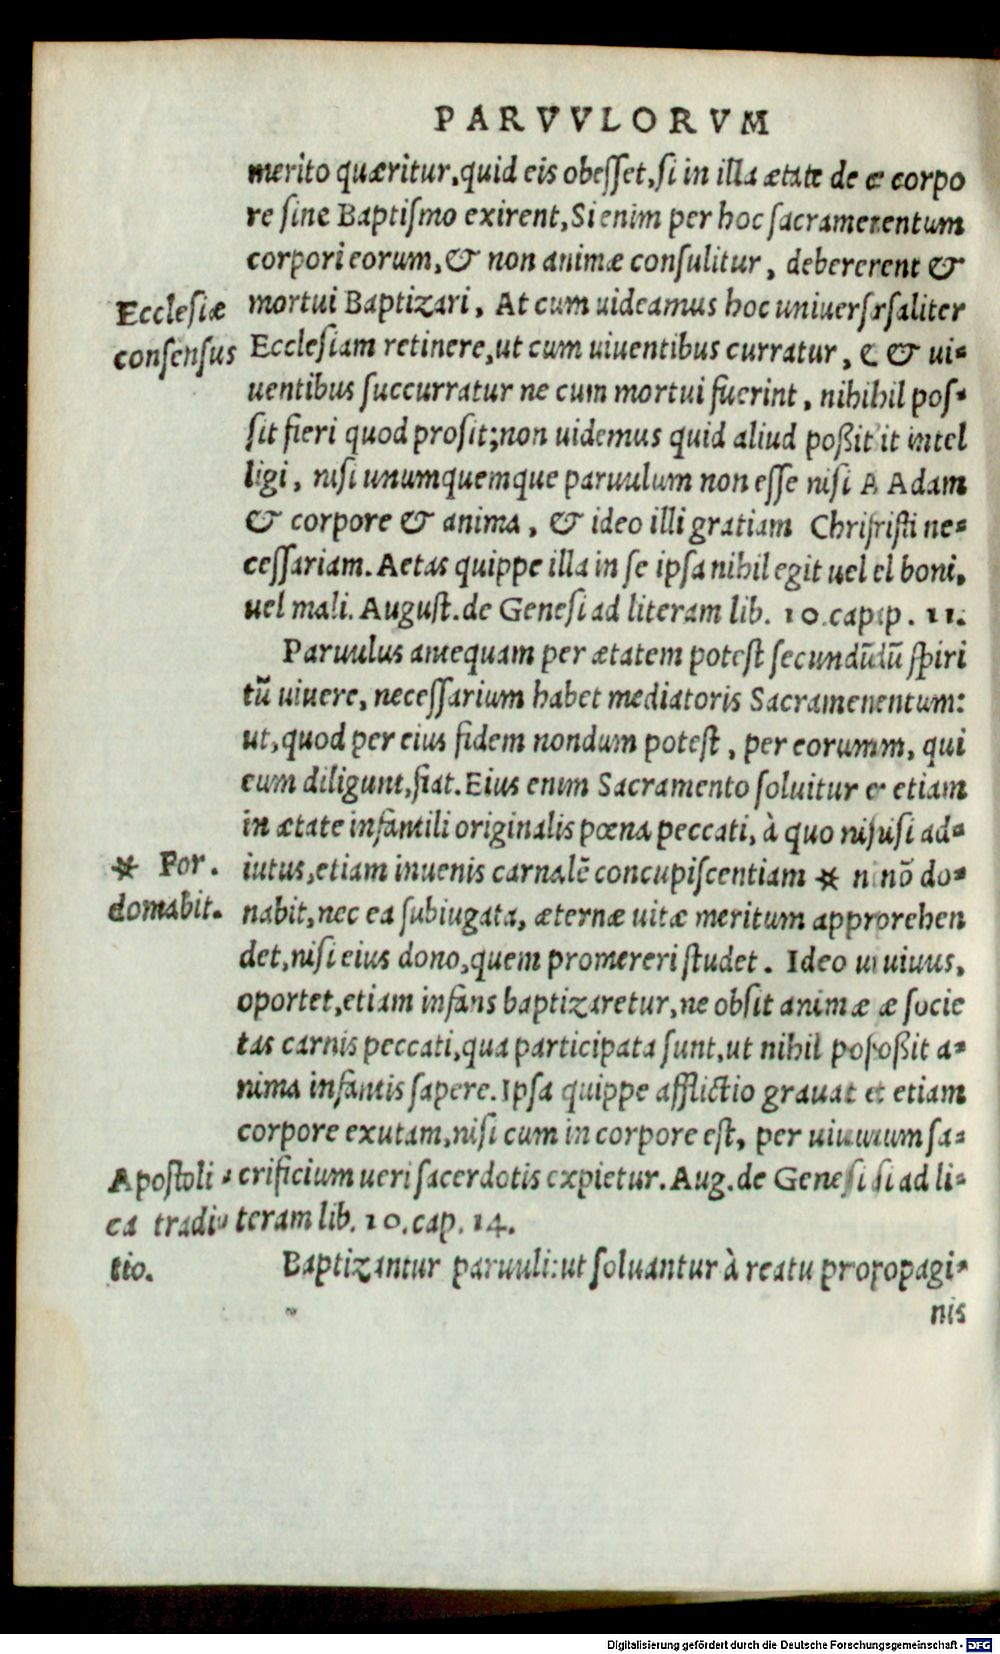 PARVVLORVM
merito quæritur, quid eis obesset, si in illa ætate de e corpo
re sine Baptismo exirent, Si enim per hoc sacramerentum
corpori eorum, & non animæ consulitur, debererent &
Ecclesiæ
mortui Baptizari, At cum uideamus hoc uniuersrsaliter
consensus
Ecclesiam retinere, ut cum uiuentibus curratur, & ui-
uentibus succurratur ne cum mortui fuerint, nihihil pos-
sit fieri quod prosit; non uidemus quid aliud poßit it intel
ligi, nisi unumquemque paruulum non esse nisi A Adam
& corpore & anima, & ideo illi gratiam Chrisristi ne-
cessariam. Aetas quippe illa in se ipsa nihil egit uel el boni,
uel mali. August. de Genesi ad literam lib. 10. cap. p. 11.
Paruulus antequam per ætatem potest secundūdū spiri
tū uiuere, necessarium habet mediatoris Sacramenentum:
ut, quod per eius fidem nondum potest, per eorumm, qui
eum diligunt, fiat. Eius enim Sacramento soluitur e etiam
in ætate infantili originalis pœna peccati, à quo nisisi ad-
* For.
iutus, etiam inuenis carnalē concupiscentiam * n nō do-
domabit.
nabit, nec ea subiugata, æternæ uitæ meritum approrehen
det, nisi eius dono, quem promereri studet. Ideo ui uiuus,
oportet, etiam infans baptizaretur, ne obsit animæ æ socie
tas carnis peccati, qua participata sunt, ut nihil posoßit a-
nima infantis sapere. Ipsa quippe afflictio grauat et etiam
corpore exutam, nisi cum in corpore est, per uiuuium sa-
Apostoli-
crificium ueri sacerdotis expietur. Aug. de Genesi si ad li-
ca traditio
teram lib. 10. cap. 14.
tio.
Baptizantur paruuli: ut soluantur à reatu proropagi-
nis
Digitalisierung gefördert durch die Deutsche Forschungsgemeinschaft - DFG